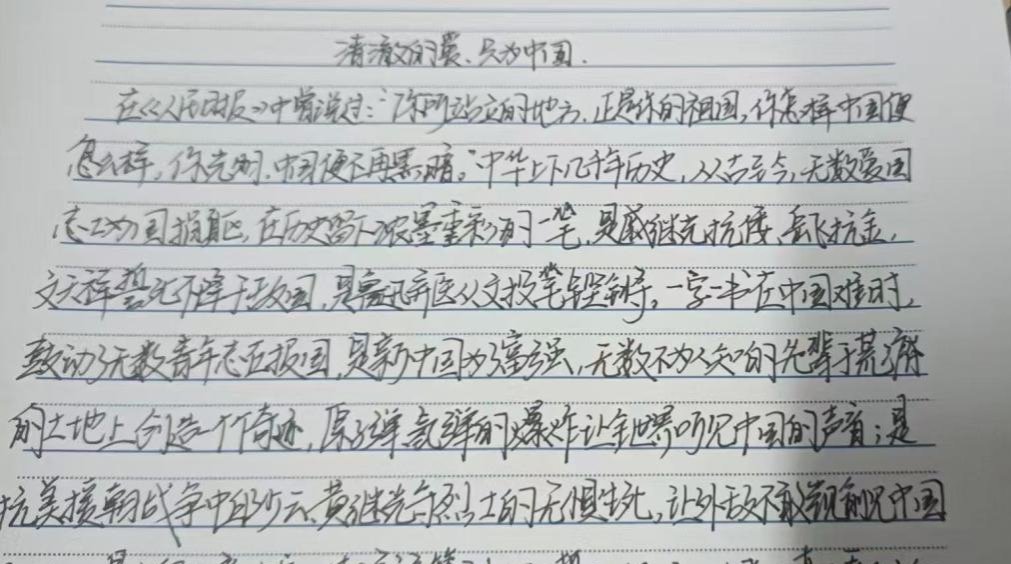 清澈的爱、只为中国.
在《人民日报》中曾说过:“你所站立的地方,正是你的祖国,你怎样中国便
怎么样,你光明,中国便不再黑暗。”中华上下几千年历史,从古至今,无数爱国
志士为国捐躯,在历史留下浓墨重彩的一笔,是戚继光抗倭、岳飞抗金,
文天祥誓死不降于敌国,是鲁迅弃医从文投笔铿锵,一字一书在中国难时,
鼓动了无数青年志在报国,是新中国为了富强,无数不为人知的先辈于荒漠
的土地上创造一个个奇迹,原子弹氢弹的爆炸让全世界听见中国的声音;是
抗美援朝战争中邱少云、黄继光等烈士的无惧生死,让外敌不敢觊觎中国